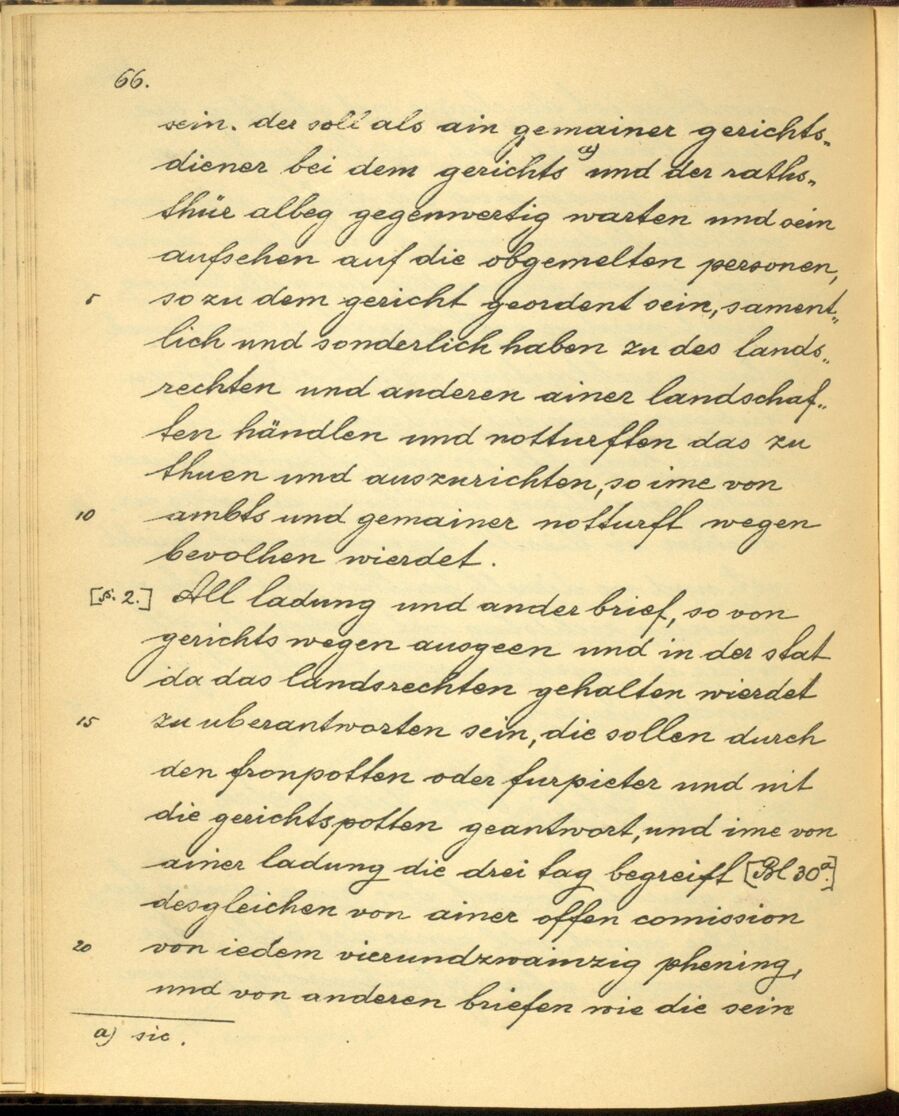 66.
sein. der soll als ain gemainer gerichts„
diener bei dem gerichts a) und der raths„
thür albeg gegenwertig warten und sein
aufsehen auf die obgemelten personen,
5 so zu dem gericht geordent sein, sament„
lich und sonderlich haben zu des lands„
rechten und anderen ainer landschaf„
ten händlen und notturften das zu
thuen und auszurichten, so ime von
10 ambts und gemainer notturft wegen
bevolhen wierdet.
[§. 2.] All ladung und ander brief, so von
gerichts wegen ausgeen und in der stat
da das landsrechten gehalten wierdet
15 zu uberantworten sein, die sollen durch
den fronpotten oder furpieter und nit
die gerichtspotten geantwort, und ime von
ainer ladung die drei tag begreift [Bl 30a.]
desgleichen von ainer offen comission
20 von iedem vierundzwainzig phening,
und von anderen briefen wie die sein
a) sic.